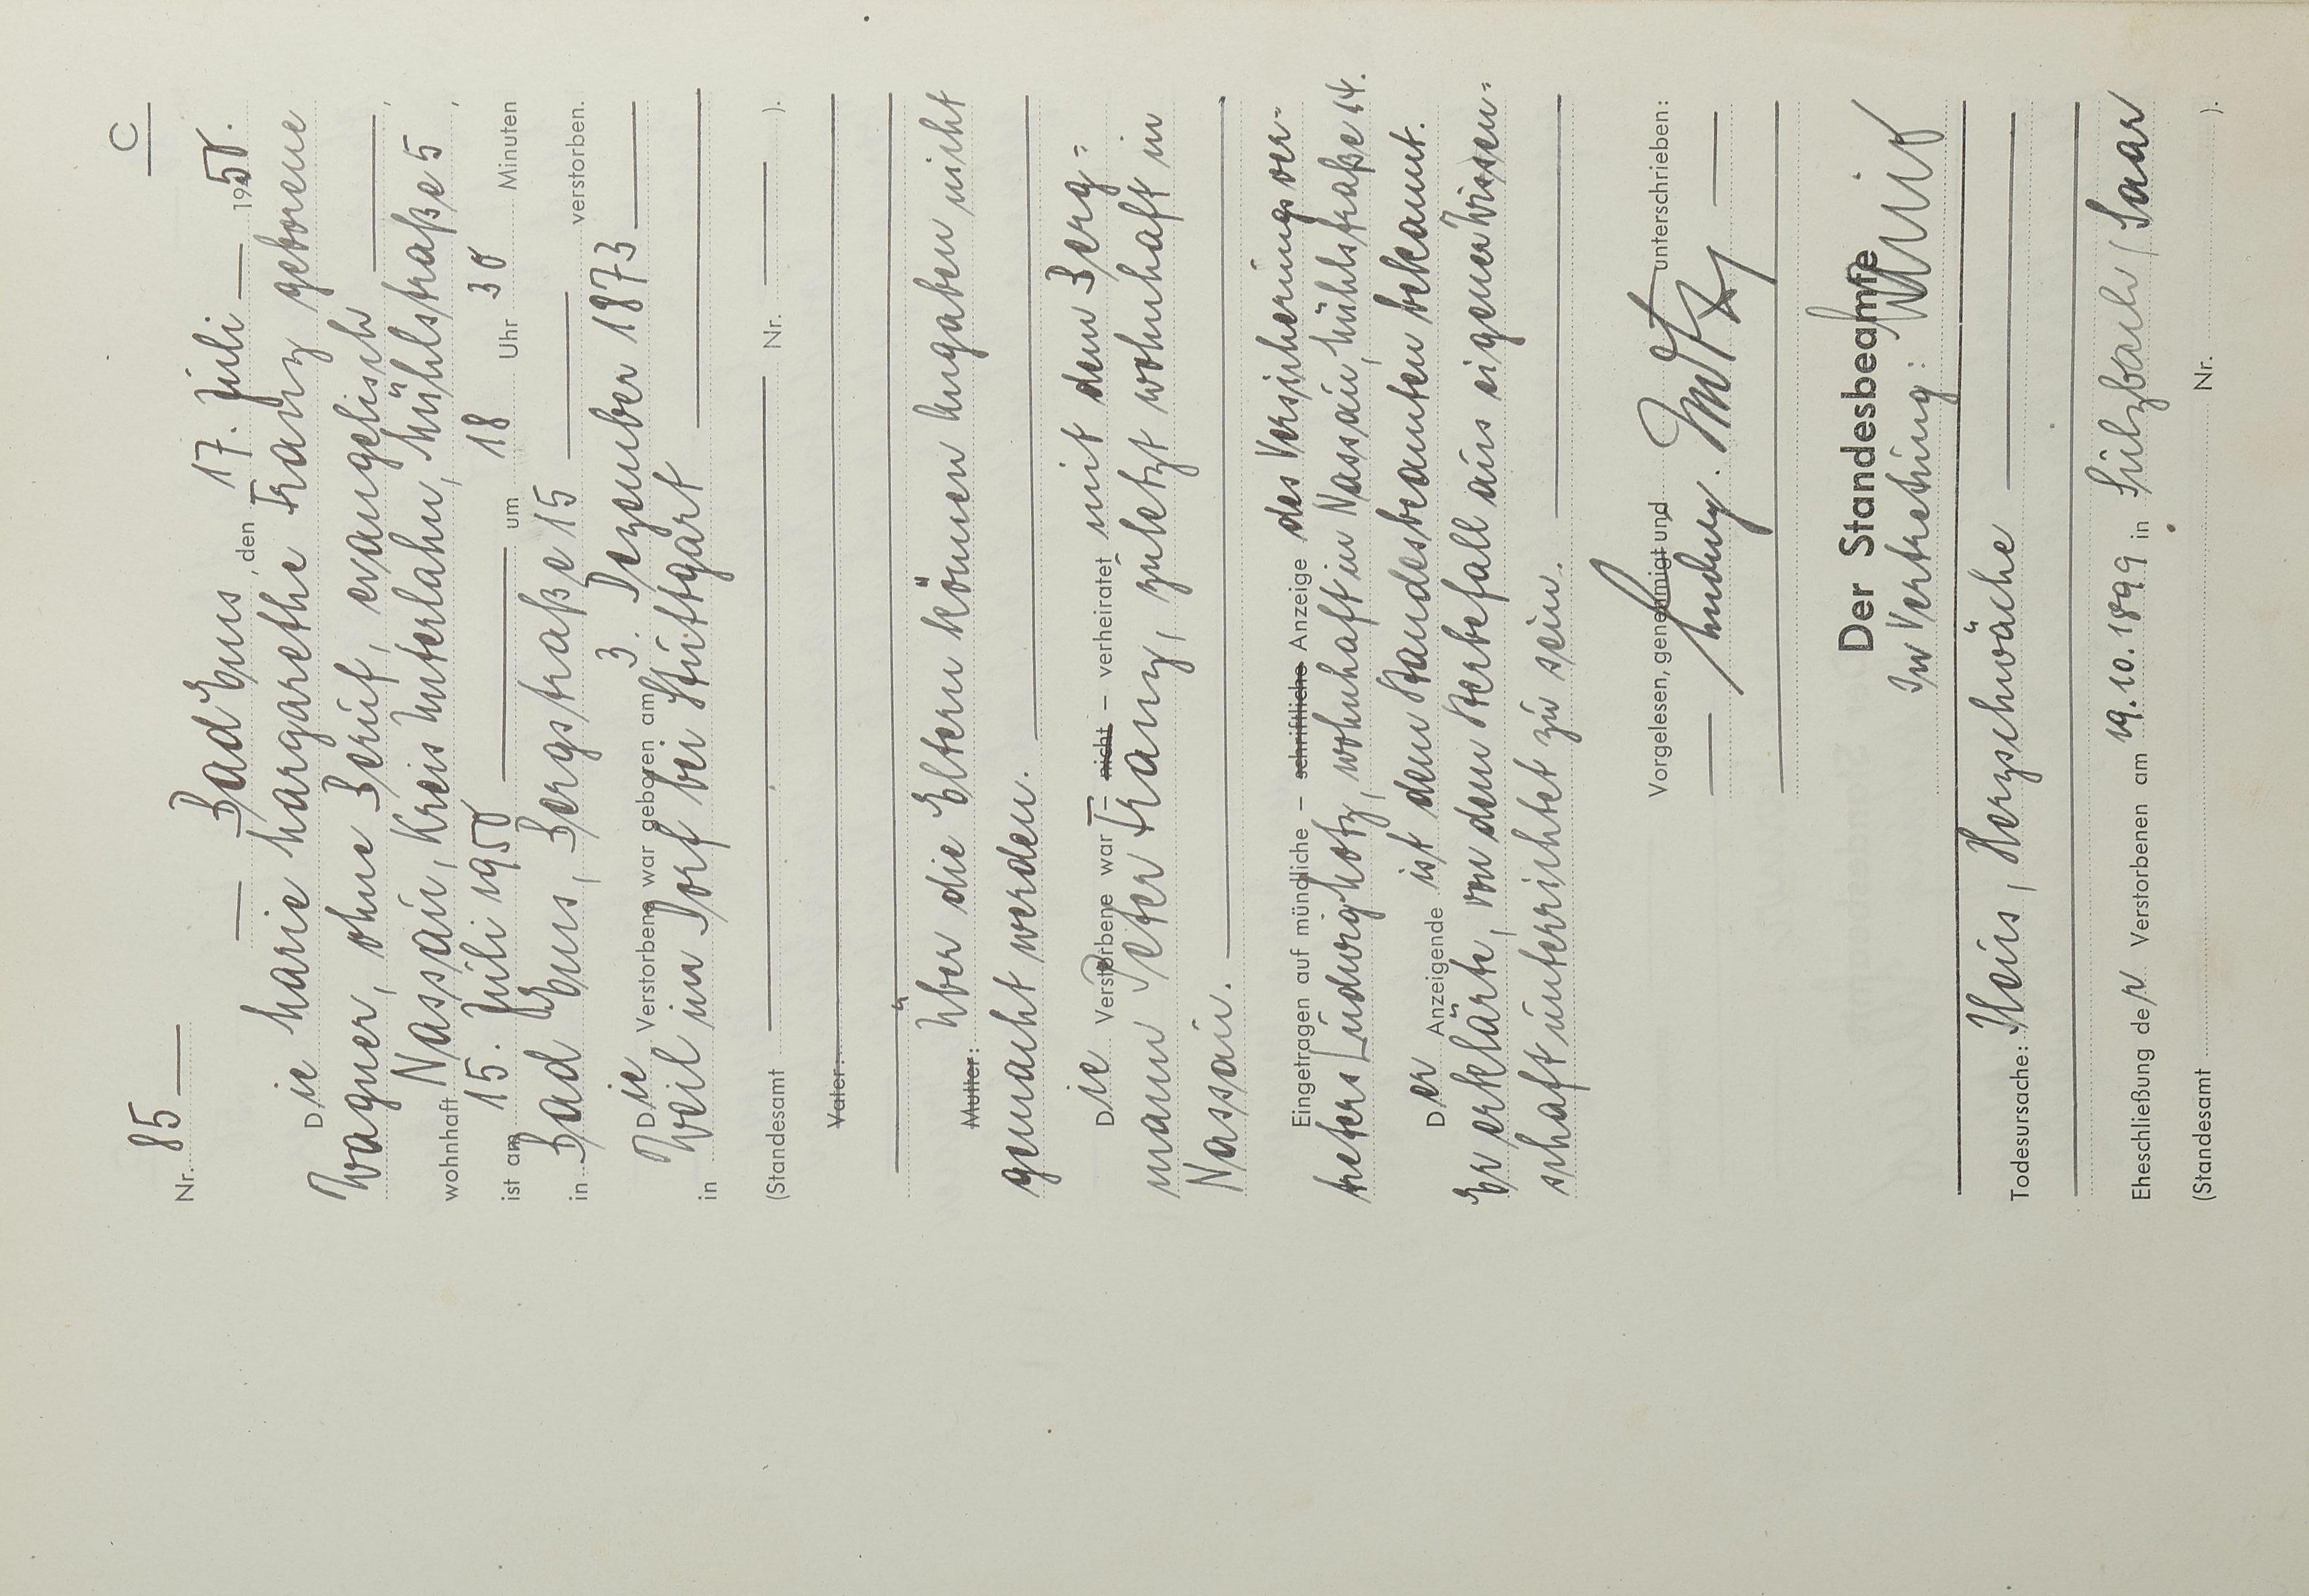 C
Nr. 85
Bad Ems, den 17. Juli 1950.
Die Marie Margarethe Franz geborene
Wagner, ohne Beruf, evangelisch,
wohnhaft Nassau, Kreis Unterlahn, Mühlstraße 5,
ist am 15. Juli 1950 um 18 Uhr 30 Minuten
in Bad Ems, Bergstraße 15 verstorben.
Die Verstorbene war geboren am 3. Dezember 1873
in Weil im Dorf bei Stuttgart
(Standesamt Nr. ).
Vater:
Mutter: Über die Eltern können Angaben nicht
gemacht werden.
Die Verstorbene war – nicht – verheiratet mit dem Berg=
mann Peter Franz, zuletzt wohnhaft in
Nassau.
Eingetragen auf mündliche – schriftliche Anzeige des Versicherungsver-
treters Ludwig Kotz, wohnhaft in Nassau, Mühlstraße 14.
Der Anzeigende ist dem Standesbeamten bekannt.
Er erklärte, von dem Sterbefall aus eigener Wissen=
schaft unterrichtet zu sein.
Vorgelesen, genehmigt und unterschrieben:
Ludwig
Der Standesbeamte
In Vertretung:
Todesursache: Ileus, Herzschwäche
Eheschließung der Verstorbenen am 19.10.1899 in Sulzbach / Saar
(Standesamt Nr. ).